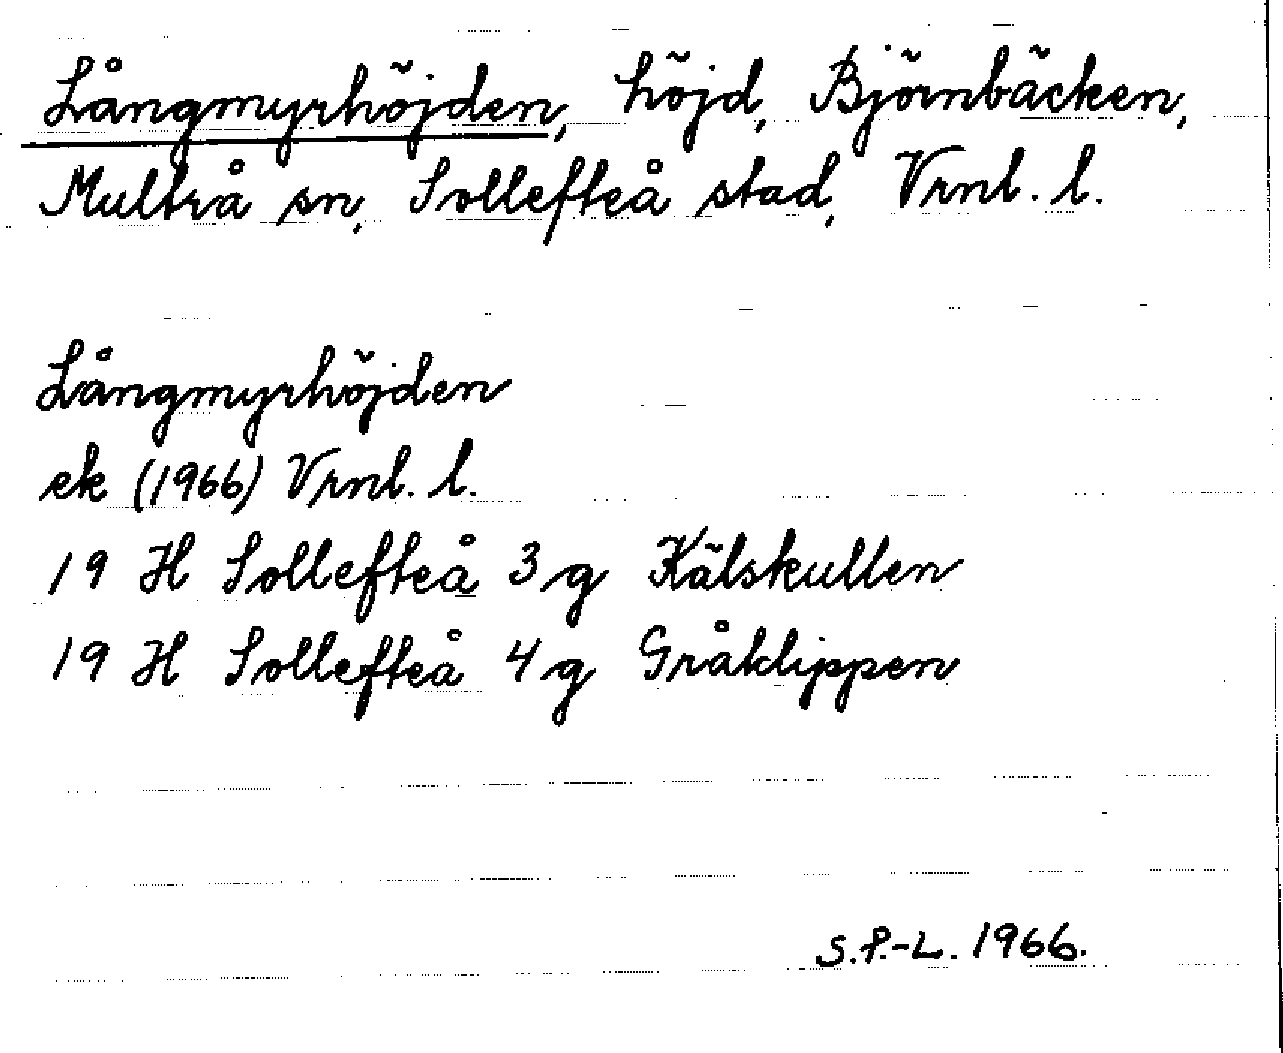 Långmyrhöjden, höjd, Björnbäcken,
Multrå sn, Sollefteå stad, Vrnl. l.
Långmyrhöjden
ek (1966) Vrnl. l.
19 H Sollefteå 3 g Kälskullen
19 H Sollefteå 4 g Gråklippen
S.P.-L. 1966.